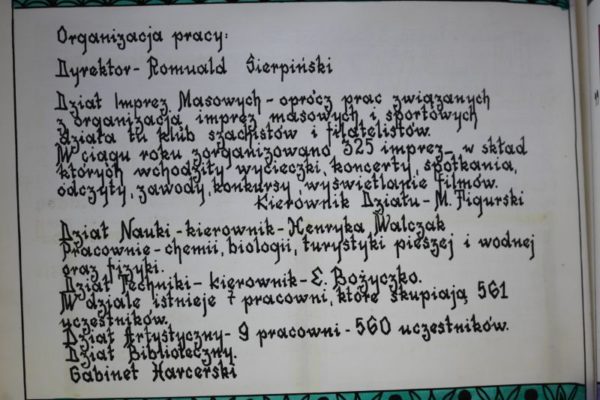 Organizacja pracy:
Dyrektor - Romuald Sierpiński
Dział Imprez Masowych - oprócz prac związanych
z organizacją imprez masowych i sportowych
działa tu klub szachistów i filatelistów.
W ciągu roku zorganizowano 325 imprez w skład
których wchodziły wycieczki, koncerty, spotkania,
odczyty, zawody, konkursy, wyświetlanie filmów.
Kierownik Działu - M. Figurski
Dział Nauki - kierownik - Henryka Walczak
Pracownie - chemii, biologii, turystyki pieszej i wodnej
oraz fizyki.
Dział Techniki - kierownik - E. Bożyczko.
W dziale istnieje 7 pracowni, które skupiają 561
uczestników.
Dział Artystyczny - 9 pracowni - 560 uczestników.
Dział Biblioteczny.
Gabinet Harcerski